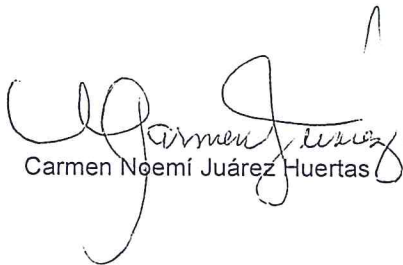 Carmen Juárez
Carmen Noemí Juárez Huertas